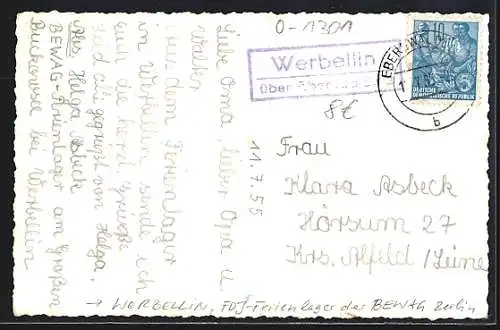 0-1301
Werbellin
über Eberswalde
EBERSWALDE
b
10
DEUTSCHE
DEMOKRATISCHE REPUBLIK
8€
11.7.55
Liebe Oma, lieber Opa u.
Walter,
Aus dem Ferienlager
in Werbellin sende ich
euch die herzl. Grüße
Seid alle gegrüßt von Helga.
Abs. Helga Asbeck
BEWAG-Ferienlager am Großen
Buckowsee bei Werbellin
Frau
Klara Asbeck
Hörsum 27
Krs. Alfeld /Leine
→ WERBELLIN, FDJ-Ferienlager der BEWAG Berlin